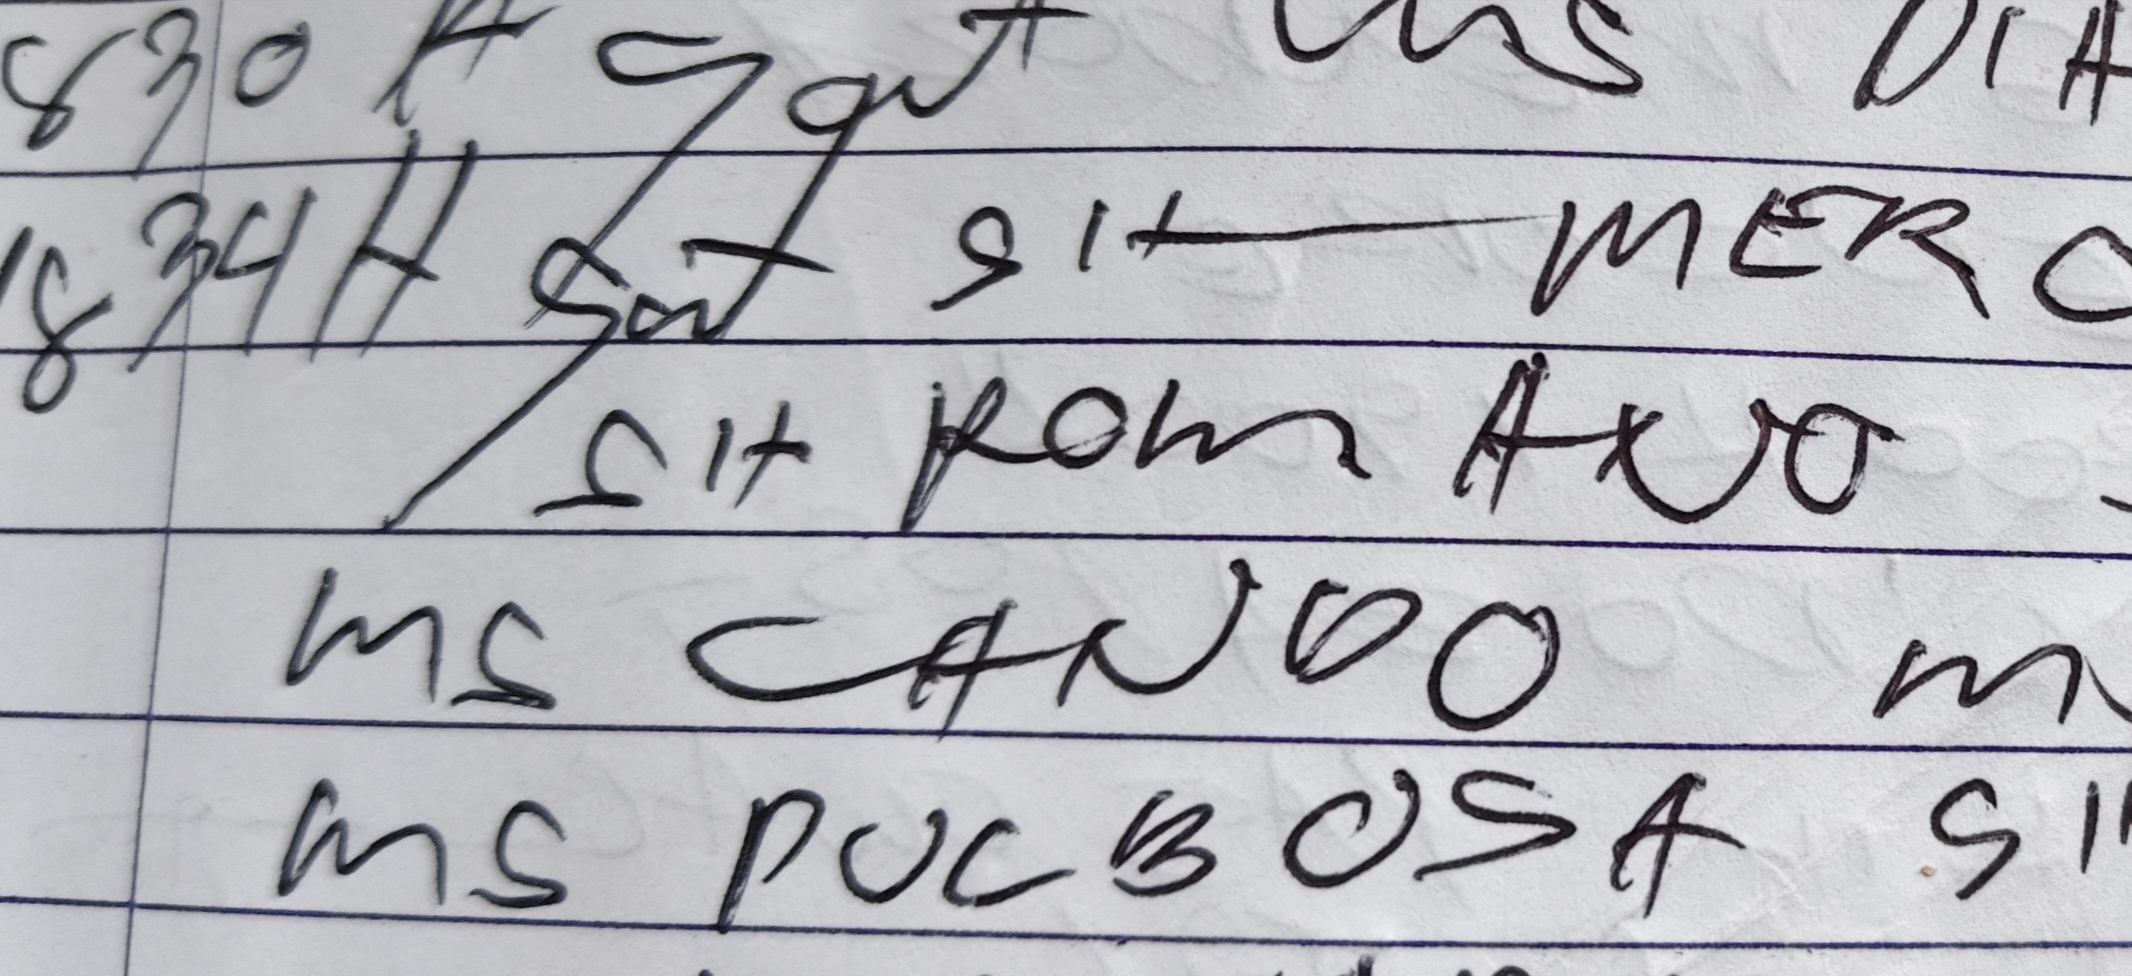 830 H Sgt MS DIA
1834H Sgt SIT MERC
SIT ROMAXUO
MS CANDO M
MS PUCBOSA SI